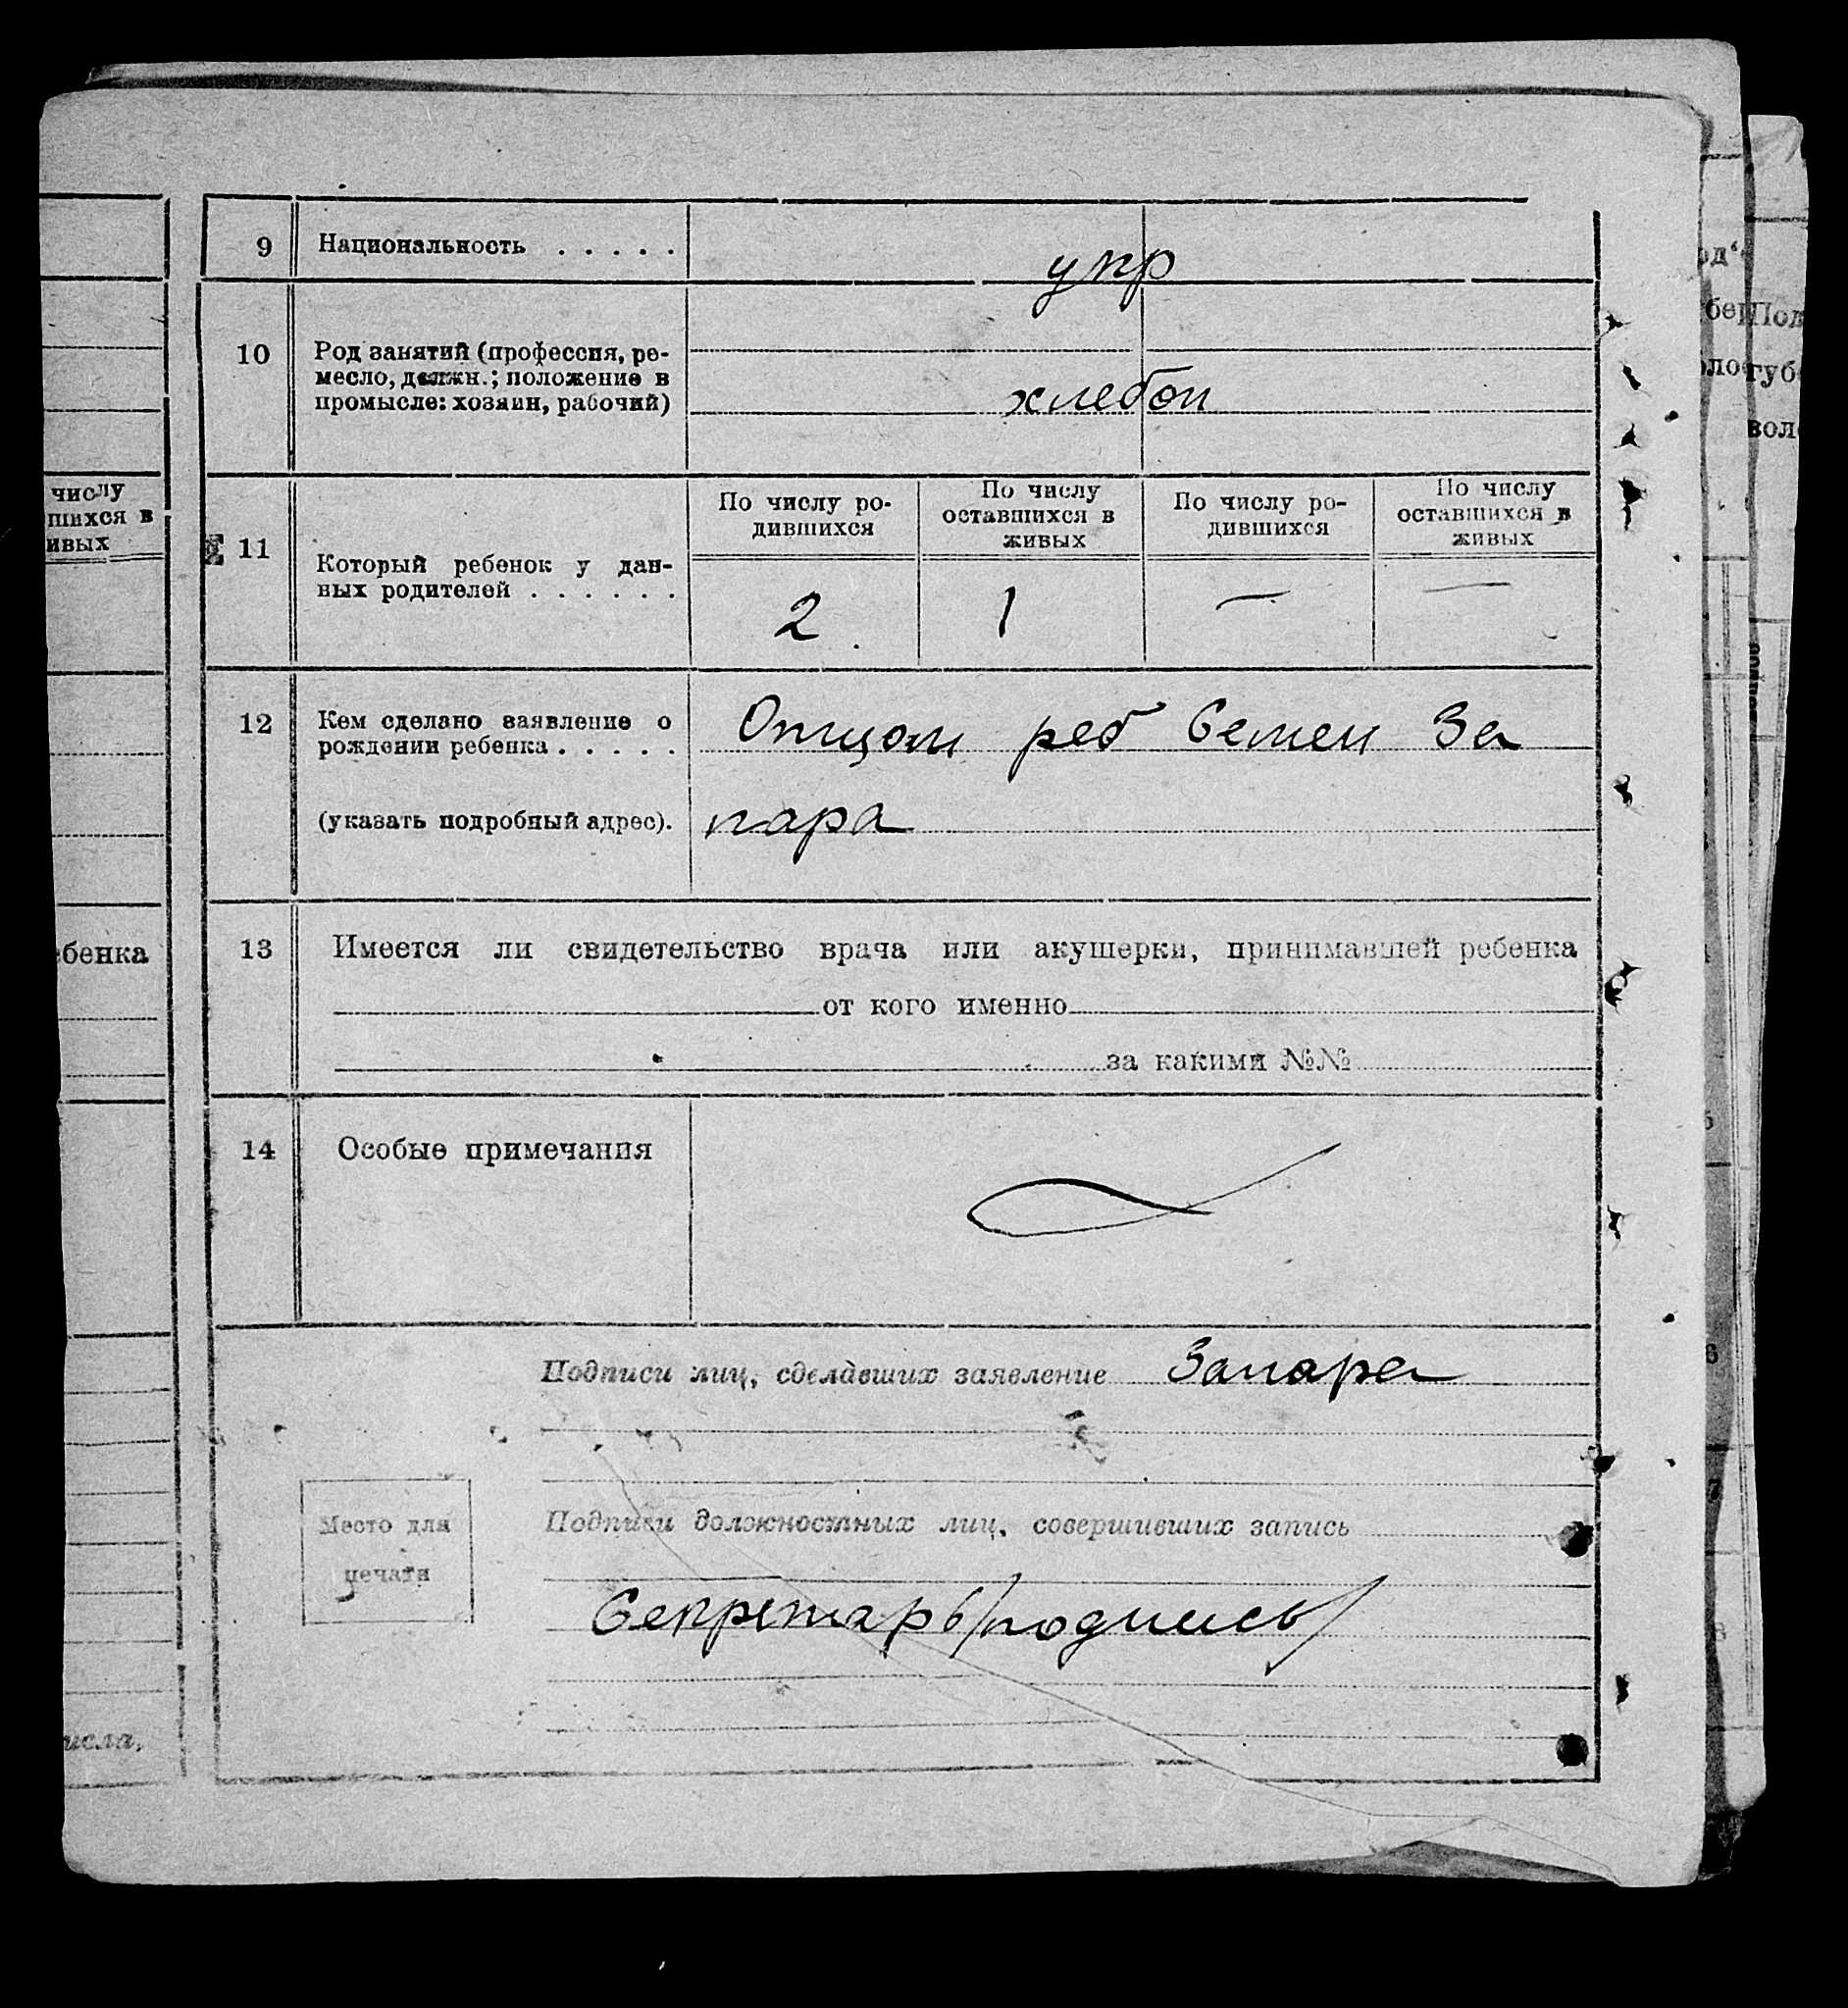 9 Национальность . . . . . укр
10 Род занятий (профессия, ре-
месло, должн.; положение в
промысле: хозяин, рабочий) хлебоп
По числу ро-
дившихся
По числу
оставшихся в
живых
По числу ро-
дившихся
По числу
оставшихся в
живых
11 Который ребенок у дан-
ных родителей . . . . . . 2 1 — —
12 Кем сделано заявление о
рождении ребенка . . . . . Отцом реб Семен За
(указать подробный адрес). пара
13 Имеется ли свидетельство врача или акушерки, принимавшей ребенка
от кого именно
за какими №№
14 Особые примечания
Подписи лиц, сделавших заявление Запара
Место для
печати
Подписи должностных лиц, совершивших запись
Секретарь /подпись/
числу
шихся в
ивых
ебенка
исла,